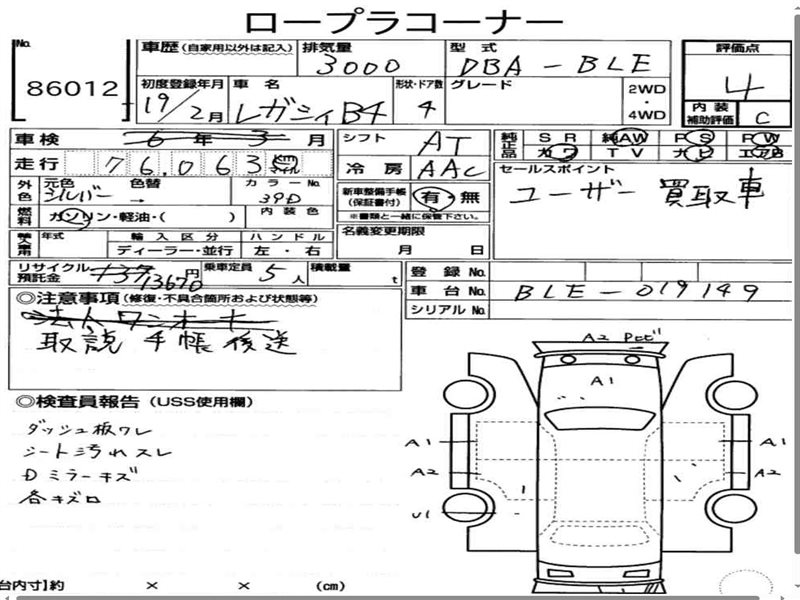 ロープラコーナー
No. 86012
車歴 (自家用以外は記入) 排気量 3000 型式 DBA-BLE
評価点 4
内装補助評価 C
初度登録年月 19/2月 車名 レガシィB4 形状・ドア数 4 グレード 2WD・4WD
車検 6年3月 シフト AT
純正品 SR 純AW PS PW
カワ TV ナビ エアB
走行 76,063 km マイル 冷房 AAC
セールスポイント
ユーザー買取車
外色 元色 シルバー 色替 → カラーNo. 39D
新車整備手帳(保証書付) 有・無
※書類と一緒に保管下さい。
燃料 ガソリン・軽油・( ) 内装色
輸入車用 年式 輸入区分 ハンドル
ディーラー・並行 左・右
名義変更期限
月 日
リサイクル預託金 13670 円 乗車定員 5人 積載量 t
登録No.
車台No. BLE-019149
シリアルNo.
◎注意事項(修復・不具合箇所および状態等)
法人ワンオーナー
取説 手帳後送
◎検査員報告(USS使用欄)
ダッシュ板ワレ
シート汚れスレ
Dミラーキズ
各キズロ
A2 Pビ
A1
A1 A1
A2 A2
U1
台内寸】約 × × (cm)